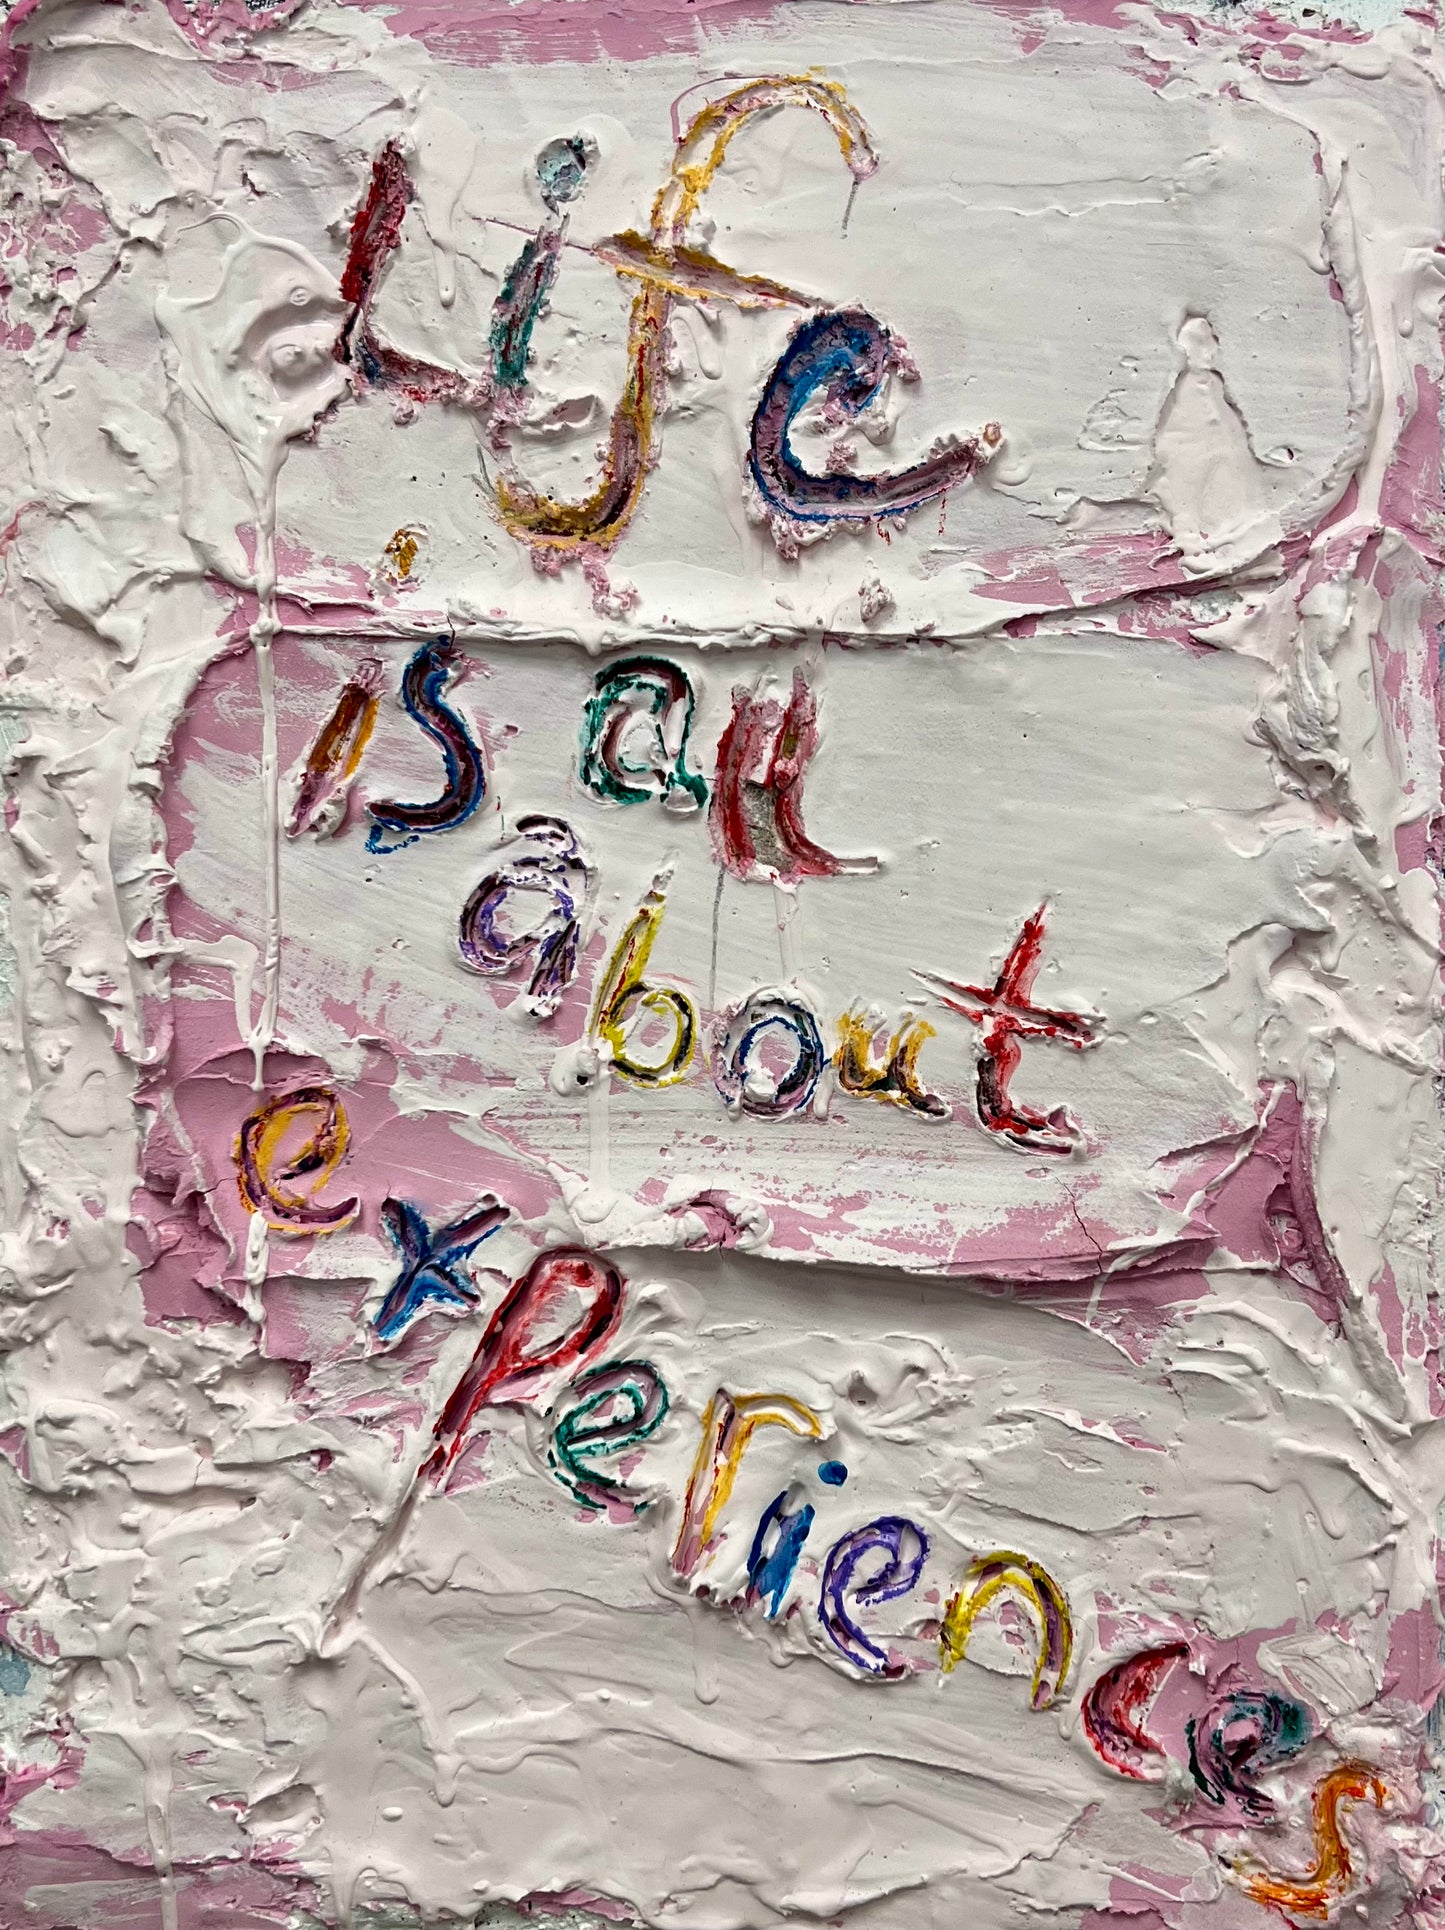 Life
is all
about
experiences